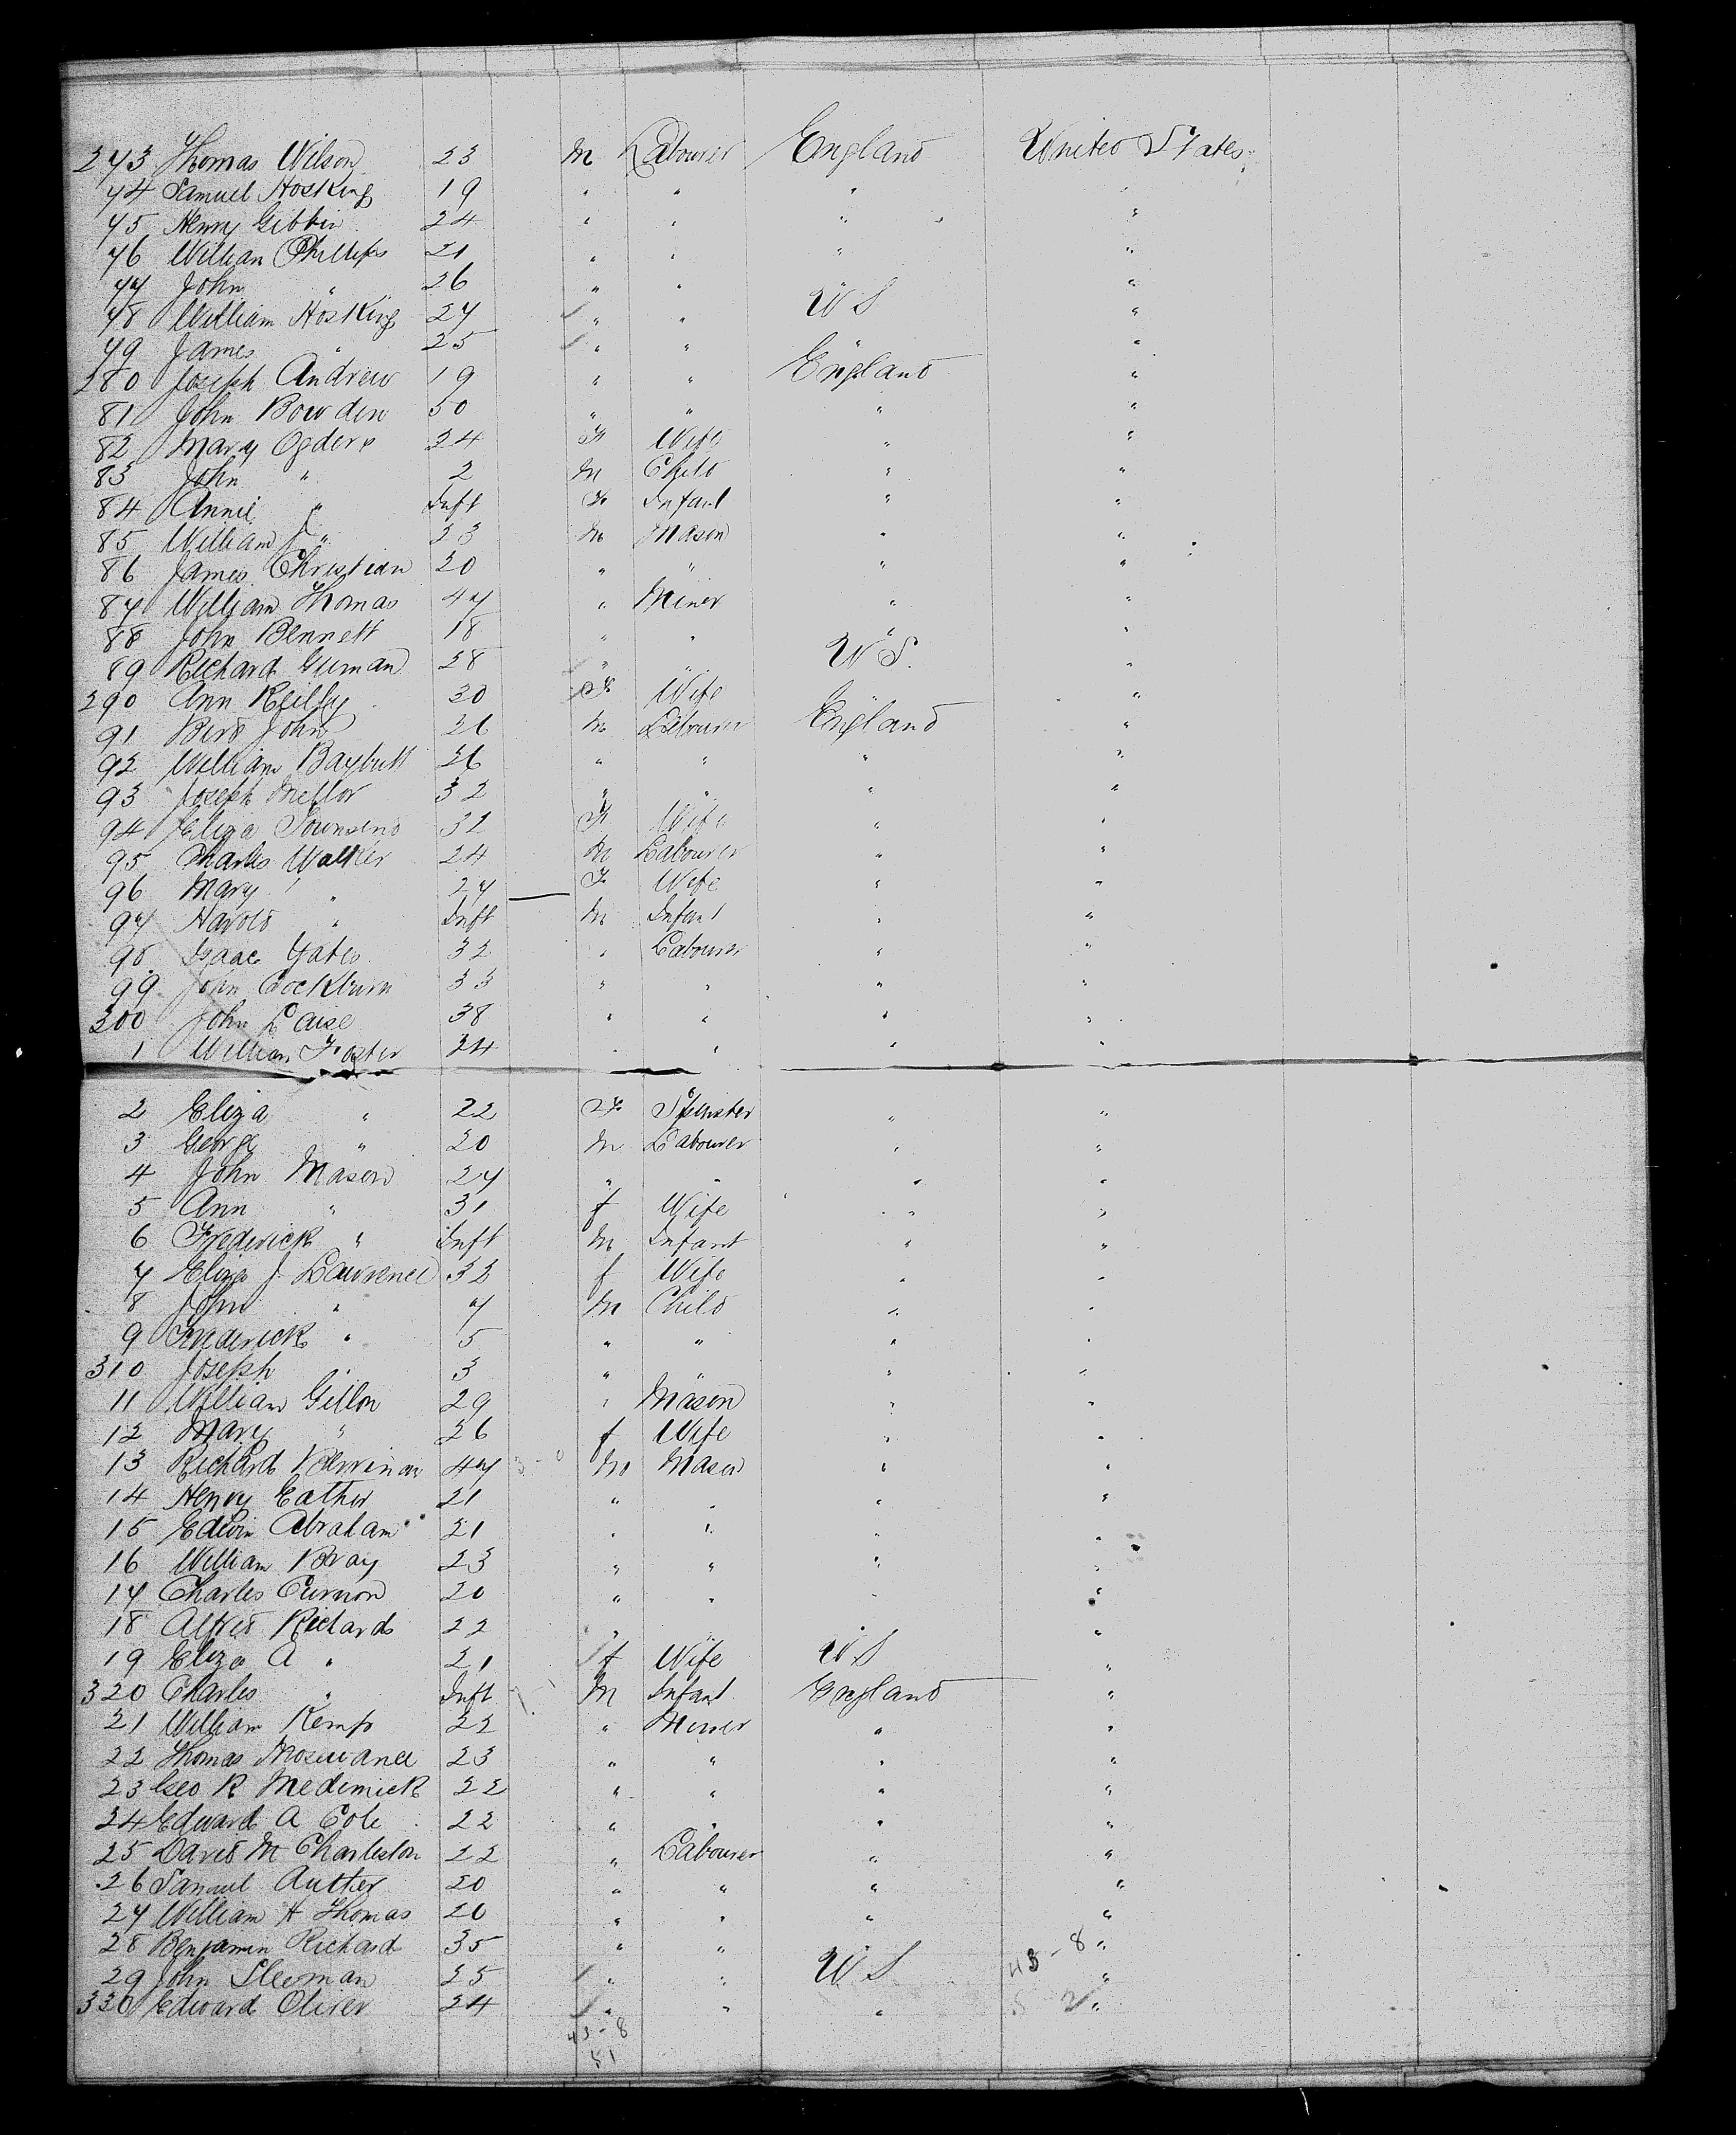 273 Thomas Wilson 23 M Labourer England United States
74 Samuel Hosking 19 " " " "
75 Henry Gibbin 24 " " " "
76 William Phillips 21 " " " "
77 John " 26 " " " "
78 William Hosking 27 " " U S "
79 James " 25 " " " "
280 Joseph Andrew 19 " " England "
81 John Bowden 50 " " " "
82 Mary Ogden 24 F Wife " "
83 John " 2 M Child " "
84 Annie " Inft F Infant " "
85 William J " 23 M Mason " "
86 James Christian 20 " " " "
87 William Thomas 47 " Miner " "
88 John Bennett 18 " " " "
89 Richard 28 " " U S. "
290 Ann Reilly 30 F Wife " "
91 Bird John 26 M Labourer England "
92 William Baybutt 26 " " " "
93 Joseph Mellor 32 " " " "
94 Eliza Townsend 32 F Wife " "
95 Charles Walker 24 M Labourer " "
96 Mary " 27 F Wife " "
97 Harold " Inft M Infant " "
98 Isaac Yates 32 " Labourer " "
99 John Cockburn 33 " " " "
300 John 38 " " " "
1 William Foster 24 " " " "
2 Eliza " 22 F Spinster " "
3 George " 20 M Labourer " "
4 John Mason 27 " " " "
5 Ann " 31 f Wife " "
6 Frederick " Inft M Infant " "
7 Eliza J Lawrence 32 f Wife " "
8 John " 7 M Child " "
9 Frederick " 5 " " " "
310 Joseph " 3 " " " "
11 William Gillon 29 " Mason " "
12 Mary " 26 f Wife " "
13 Richard 47 M Mason " "
14 Henry Eather 21 " " " "
15 Edwin Abraham 21 " " " "
16 William Bray 23 " " " "
17 Charles Curnow 20 " " " "
18 Alfred Richards 22 " " " "
19 Eliza A " 21 f Wife U S "
320 Charles " Inft M Infant England "
21 William Kemp 22 " Miner " "
22 Thomas 23 " " " "
23 Geo R 22 " " " "
24 Edward A Cole 22 " " " "
25 David M Charleston 22 " Labourer " "
26 Samuel Author 20 " " " "
27 William H Thomas 20 " " " "
28 Benjamin Richard 35 " " " "
29 John Sleeman 25 " " U S 43-8 "
330 Edward Oliver 24 " " " 5 2 "
43-8
51